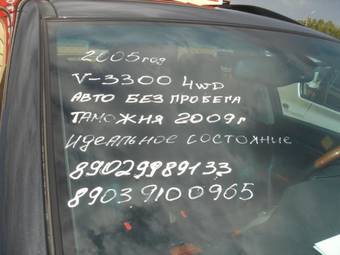 2005год
V-3300 4WD
АВТО БЕЗ ПРОБЕГА
ТАМОЖНЯ 2009г
ИДЕАЛЬНОЕ СОСТОЯНИЕ
89029989133
89039100965